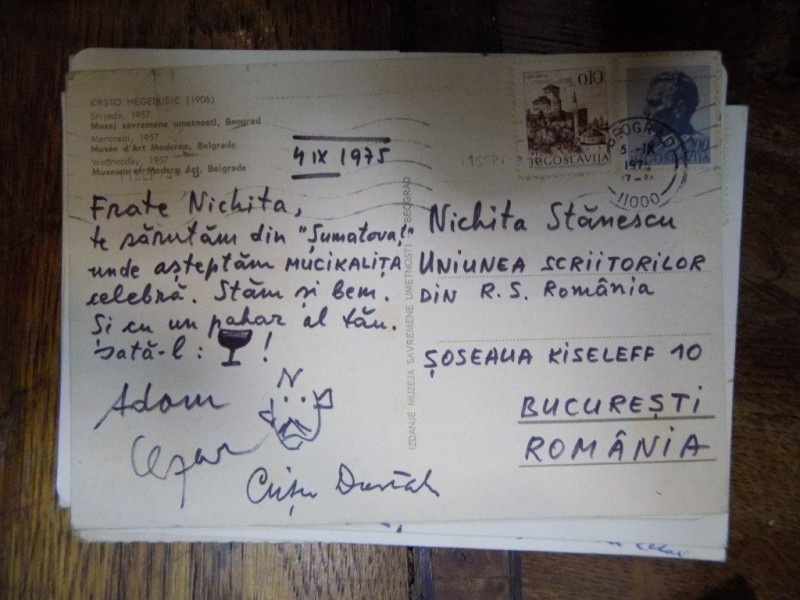 KRSTO HEGEDUŠIĆ (1906)
Srijeda, 1957
Muzej savremene umetnosti, Beograd
Mercredi, 1957
Musée d'Art Moderne, Belgrade
Wednesday, 1957
Museum of Modern Art, Belgrade
4 IX 1975
Frate Nichita,
te sărutăm din "Șumatovaț"
unde așteptăm MUCIKALIȚA
celebră. Stăm și bem.
Și cu un pahar al tău.
Iată-l : !
N
Adam
Cezar
IZDANJE MUZEJA SAVREMENE UMETNOSTI BEOGRAD
0,10
JUGOSLAVIJA
JUGOSLAVIJA
BEOGRAD
11000
Nichita Stănescu
UNIUNEA SCRIITORILOR
DIN R. S. România
ȘOSEAUA KISELEFF 10
BUCUREȘTI
ROMÂNIA